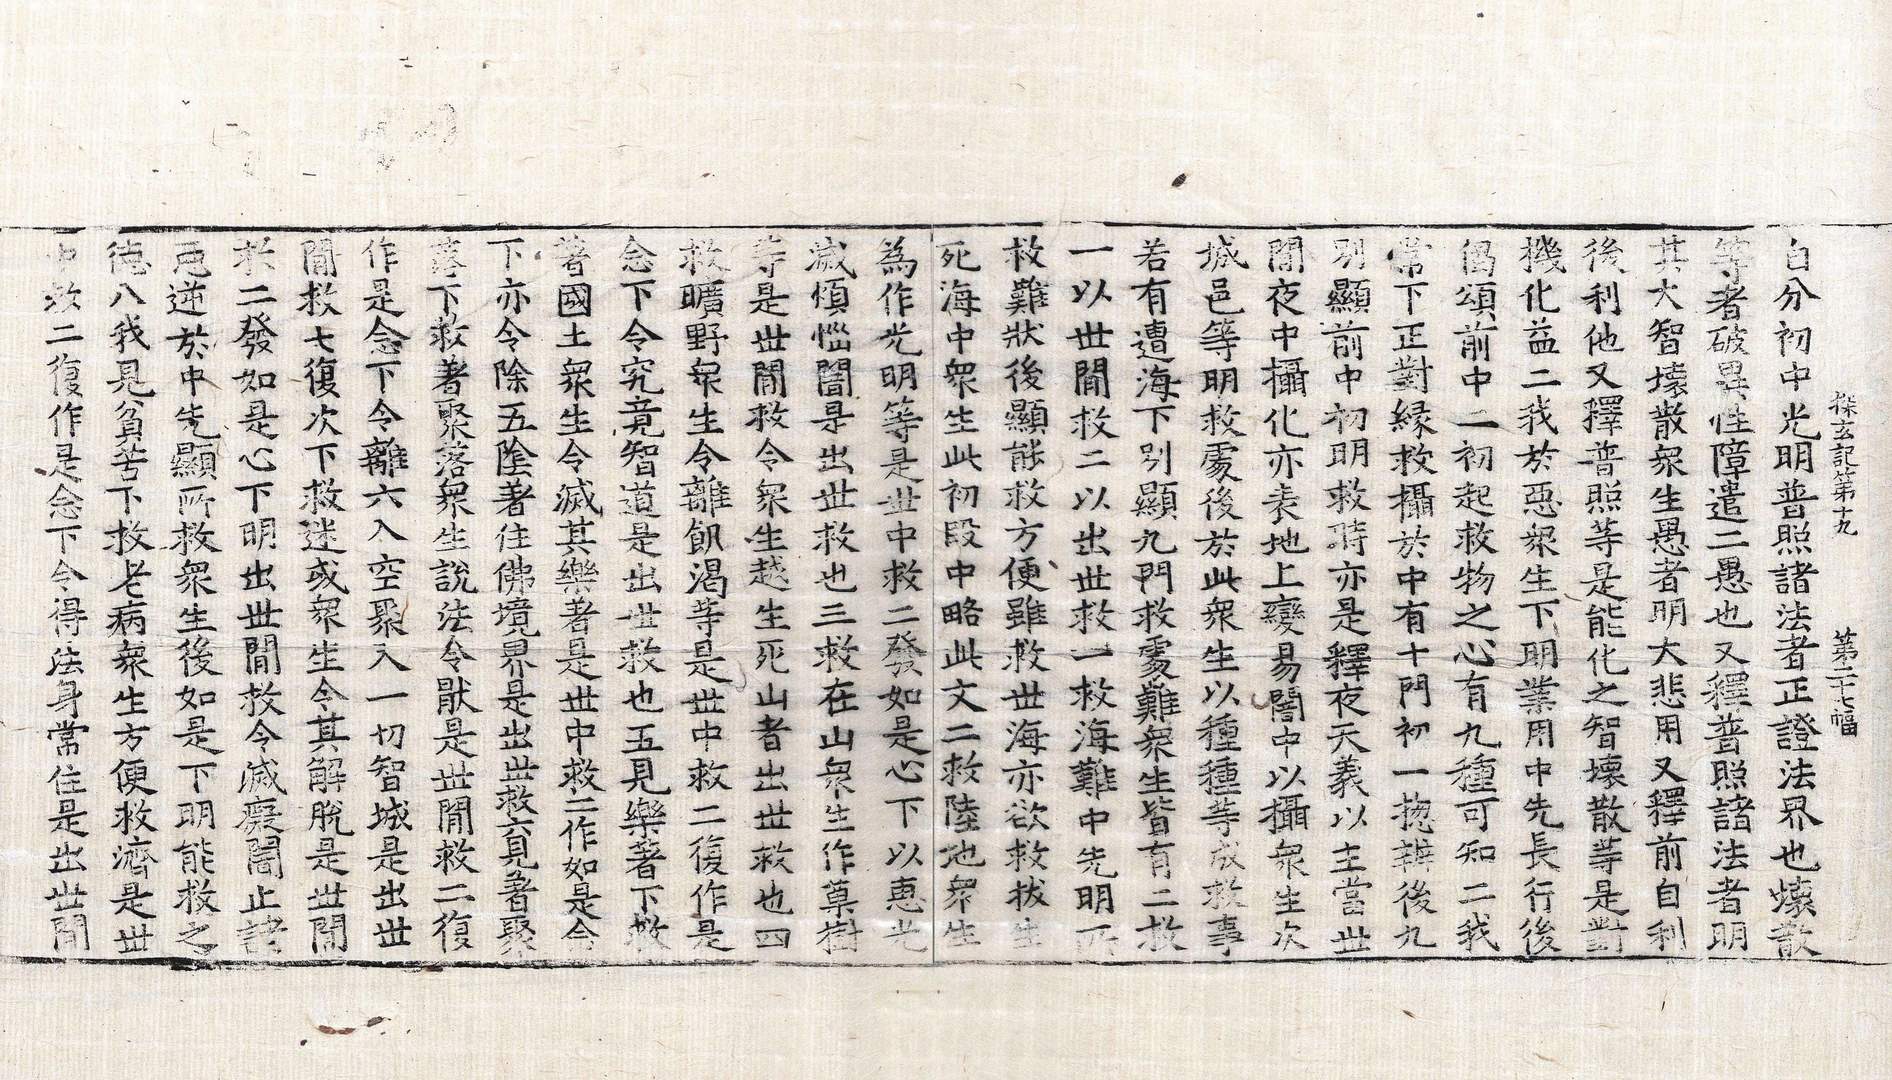 探玄記第十九 第二十七幅
自分初中光明普照諸法者正證法界也壞散
等者破異性障遣二愚也又釋普照諸法者明
其大智壞散衆生愚者明大悲用又釋前自利
後利他又釋普照等是能化之智壞散等是對
機化益二我於惡衆生下明業用中先長行後
偈頌前中二初起救物之心有九種可知二我
常下正對緣救攝於中有十門初一揔辨後九
別顯前中初明救時亦是釋夜天義以主當世
闇夜中攝化亦表地上變易闇中以攝衆生次
城邑等明救處後於此衆生以種種等成救事
若有遭海下別顯九門救處難衆生皆有二救
一以世間救二以出世救一救海難中先明所
救難狀後顯能救方便雖救世海亦欲救拔生
死海中衆生此初段中略此文二救陸地衆生
為作光明等是世中救二發如是心下以惠光
滅煩惱闇是出世救也三救在山衆生作菓樹
等是世間救令衆生越生死山者出世救也四
救曠野衆生令離飢渴等是世中救二復作是
念下令究竟智道是出世救也五見樂著下救
著國土衆生令滅其樂著是世中救二作如是念
下亦令除五陰著住佛境界是出世救六見著聚
落下救著聚落衆生說法令猒是世間救二復
作是念下令離六入空聚入一切智城是出世
間救七復次下救迷或衆生令其解脫是世間
救二發如是心下明出世間救令滅癡闇止諸
惡逆於中先顯所救衆生後如是下明能救之
德八我見貧苦下救老病衆生方便救濟是世
中救二復作是念下令得法身常住是出世間